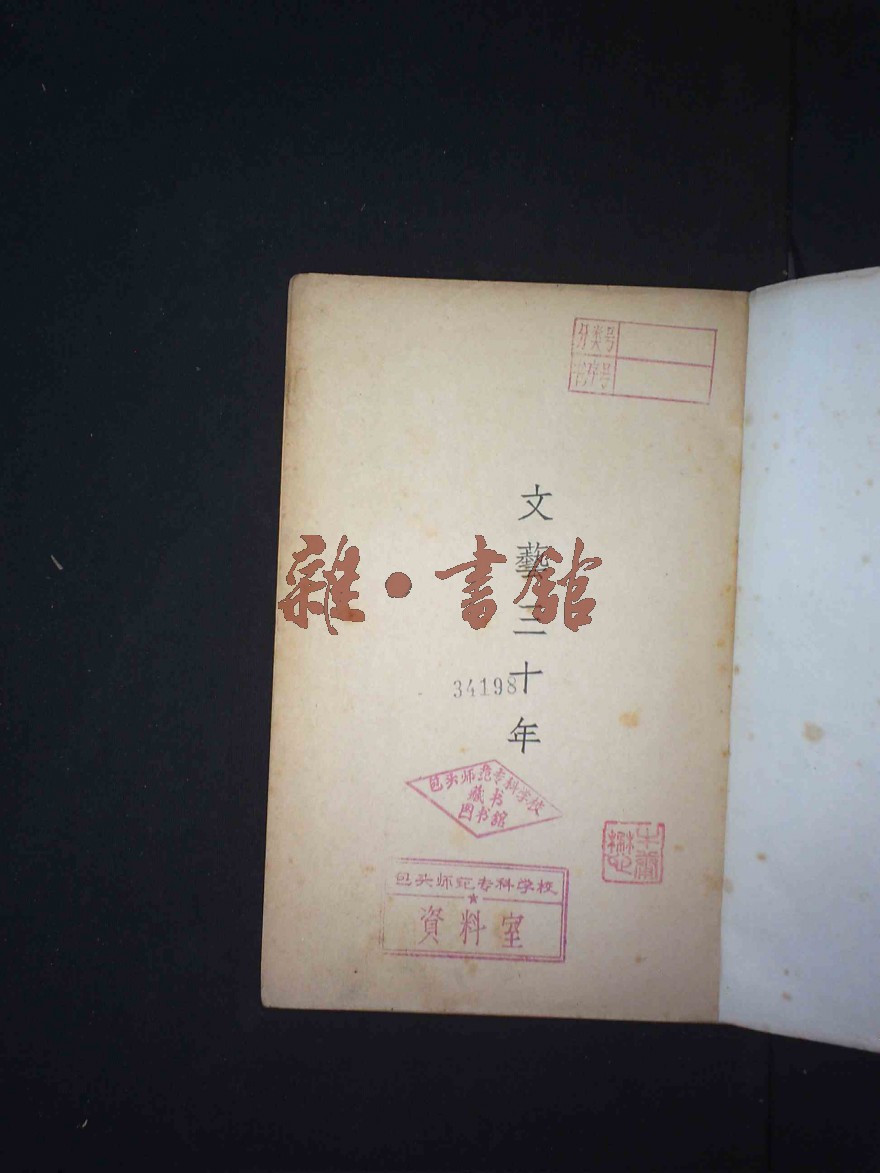 分类号
书序号
文藝三十年
雜·書館
34198
包头师范专科学校
藏书
图书館
包头师范专科学校
資料室